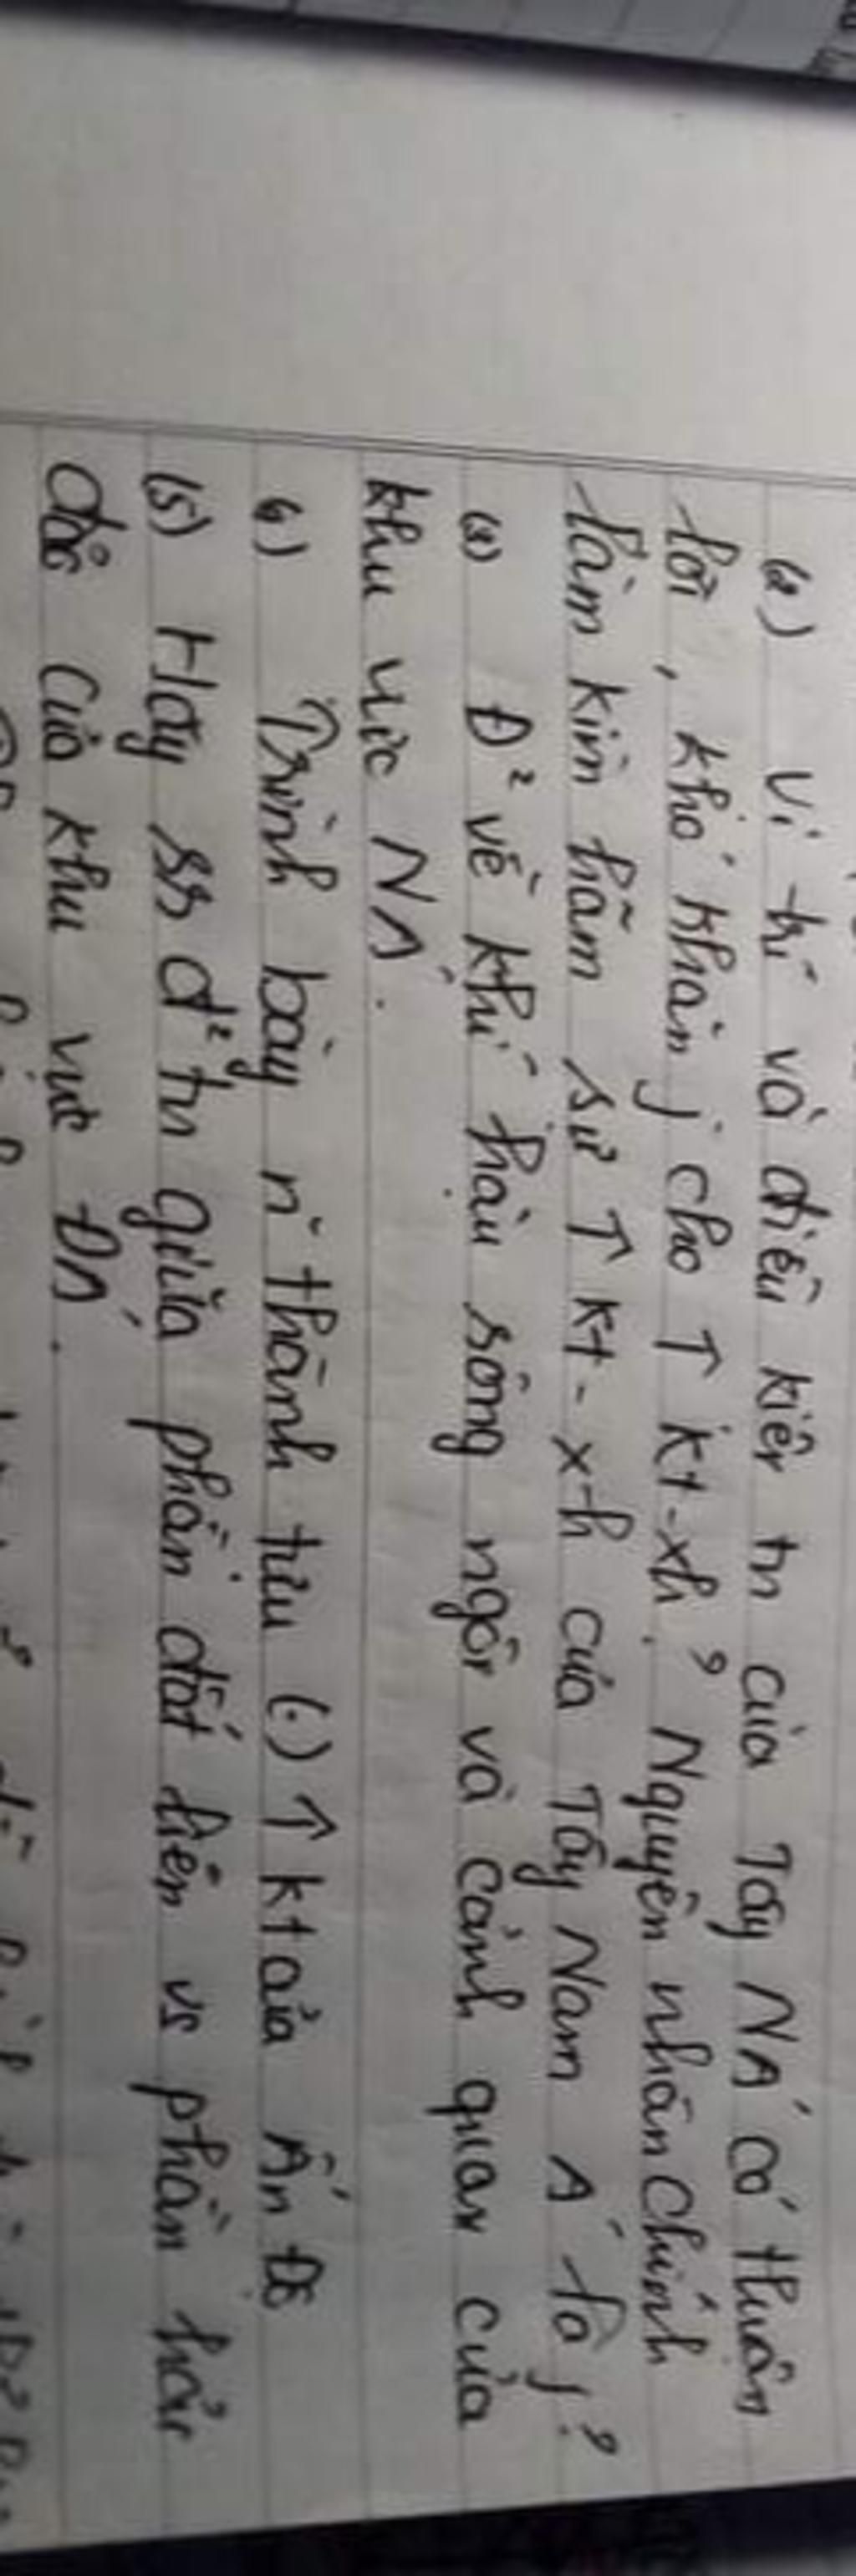 (2) Vị trí và điều kiện tn của Tây NÁ có thuận
lợi, khó khăn j cho ↑ kt-xh? Nguyên nhân chính
làm kìm hãm sự ↑ kt-xh của Tây Nam Á là j?
(3) Đ² về khí hậu sông ngòi và cảnh quan của
khu vực NÁ.
4) Trình bày n~ thành tựu (.) ↑ kt của Ấn Độ
(5) Hãy ss đ² tn giữa phần đất liền vs phần hải
đảo của khu vực ĐÁ.